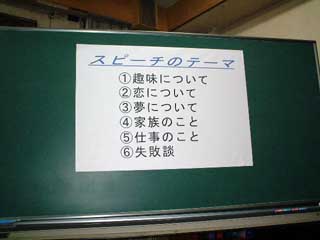 スピーチのテーマ
①趣味について
②恋について
③夢について
④家族のこと
⑤仕事のこと
⑥失敗談